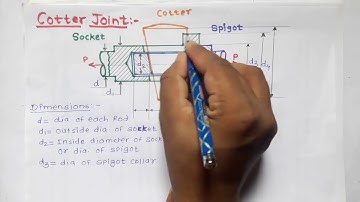 Cotter Joint:-
Cotter
Socket
Spigot
P
P
d
d₁
d₂
d₃
d₄
Dimensions:-
d = dia of each Rod
d₁ = outside dia of socket
d₂ = Inside diameter of soc
or dia. of spigot
d₃ = dia of spigot collar